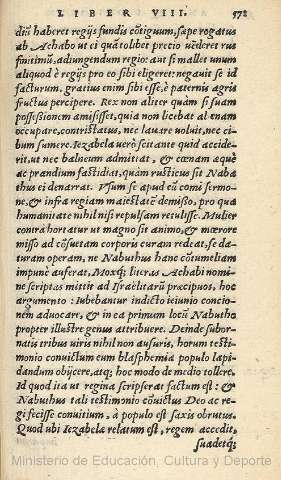 LIBER VIII. 572
dius haberet regijs fundis cōtiguum, sæpe rogatus
ab Achabo ut ei quātolibet precio uēderet rus
finitimū, adiungendum regio: aut si mallet unum
aliquod è regijs pro eo sibi eligeret: negauit se id
facturum, gratius enim sibi esse, è paternis agris
fructus percipere. Rex non aliter quàm si suam
possessionem amisisset, quia non licebat alienam
occupare, contristatus, nec lauare voluit, nec ci
bum sumere. Iezabela verò scitante quid accide
rit, ut nec balneum admittat, & cœnam æquè
ac prandium fastidiat, quàm rusticus sit Naba
thus ei denarrat. Vsum se apud eū comi sermo
ne, & infra regiam maiestatē demisso, pro qua
humanitate nihil nisi repulsam retulisse. Mulier
contrà hortatur ut magno sit animo, & mœrore
misso ad cōsuetam corporis curam redeat, se da
turam operam, ne Nabuthus hanc cōtumeliam
impunè auferat, Moxq́; literas Achabi nomi
ne scriptas mittit ad Israëlitarū præcipuos, hoc
argumento: Iubebantur indicto ieiunio concio
nem aduocare, & in ea primum locū Nabutho
propter illustre genus attribuere. Deinde subor-
natis tribus viris nihil non ausuris, horum testi
monio conuictum ceu blasphemia populo lapi
dandum obijcere, atq; hoc modo de medio tollere.
Id quod ita ut regina scripserat factum est: &
Nabuthus tali testimonio cōuictus Deo ac re-
gi fecisse conuitium, à populo est saxis obrutus.
Quod ubi Iezabela relatum est, regem accedit,
suadetq́;
Ministerio de Educación, Cultura y Deporte